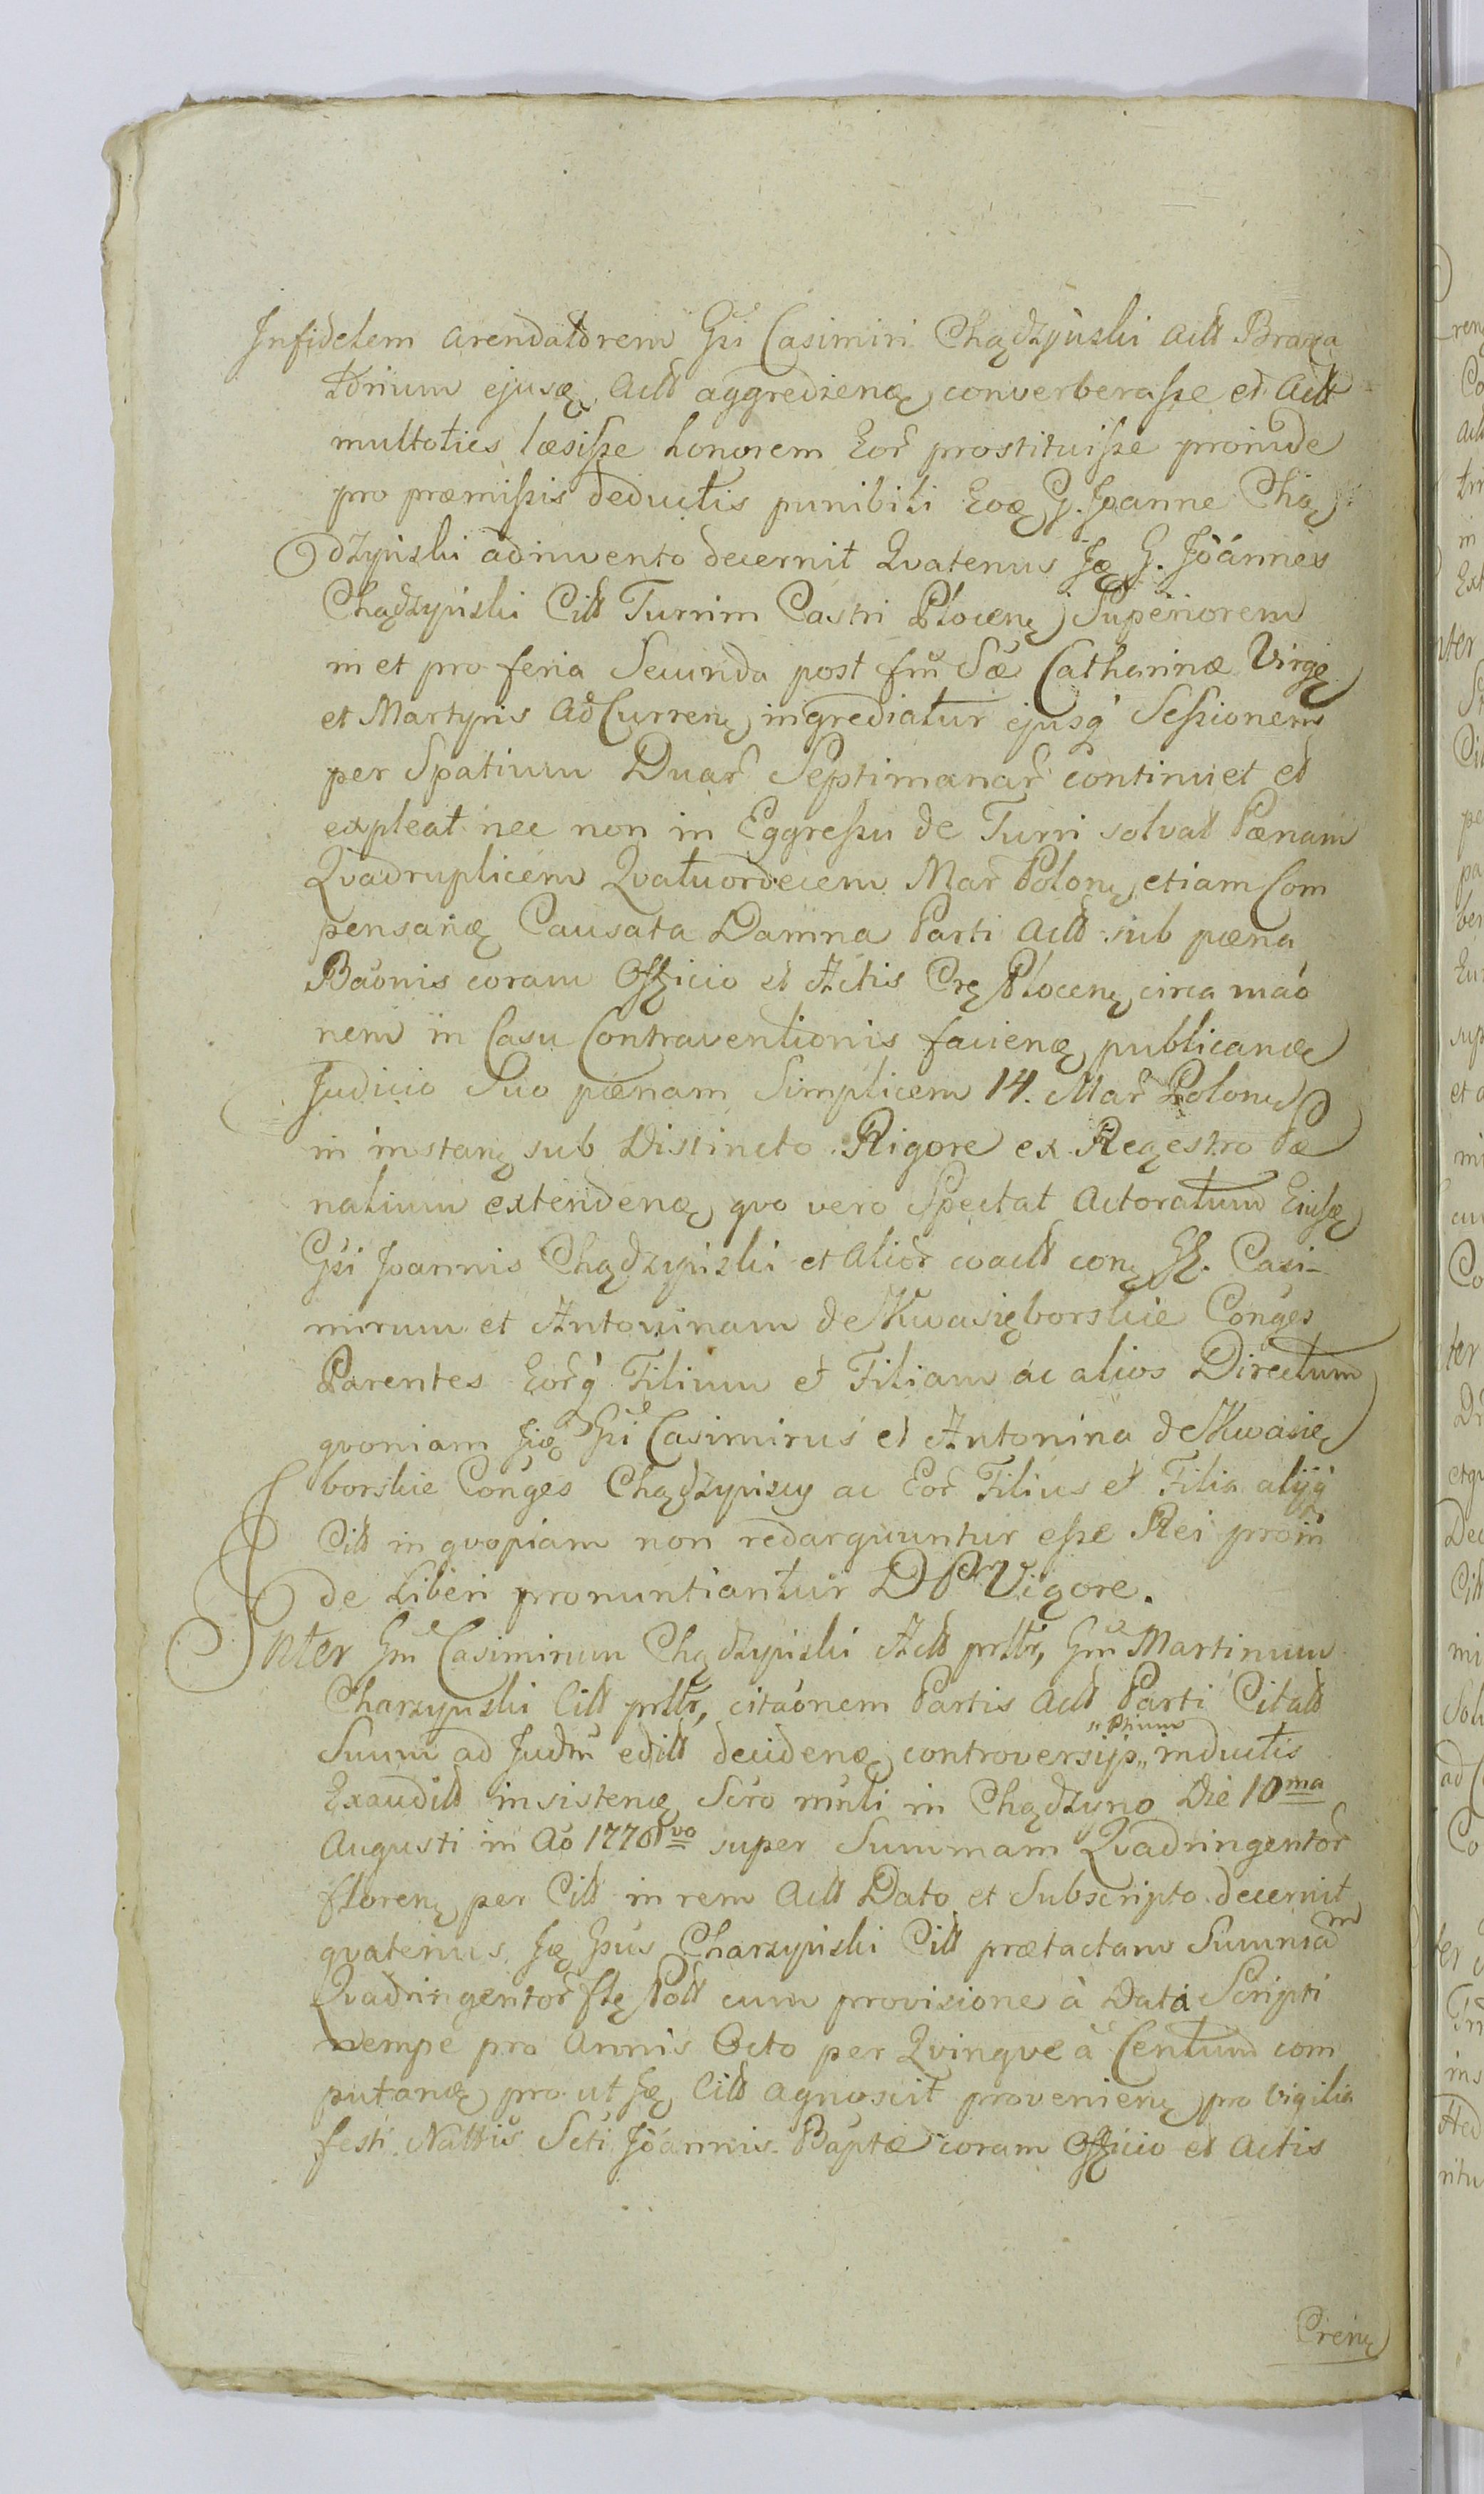 Infidelem arendatorem Gsi Casimiri Chądzyński Actt Braxa
torium ejusq, Actt aggredienq, converberasse et Actt
multoties læsisse honorem Eor prostituisse proinde
pro præmissis deductis punibili Eoq G. Joanne Chą
dzyński adinvento decernit Qvatenus Jq G. Joannes
Chądzyński Citt Turrim Castri Plocenę Superiorem
in et pro feria Secunda post fm Sæ Catharinæ Virgę
et Martyris Ad Currenę ingrediatur ejusq́ Sessionem
per Spatium Duar Septimanar continuet et
expleat nec non in Eggressu de Turri solvat Pænam
Qvadruplicem Qvatuordecem Mar Polonę etiam Com
pensanę Causata Damna Parti Actt sub pœna
Baonis coram Officio et Actis Crę Plocenę circa mao
nem in Casu Contraventionis facienę publicanę
Judicio Suo pœnam Simplicem 14. Mar Polonę
in instanę sub Distincto Rigore ex Regestro Pæ
nalium extendenę, qvo vero Spectat Actoratum Eiusę
Gsi Joannis Chądzyński et Alior coactt conę GG. Casi-
mirum et Antoninam de Kwasięborskie Conges
Parentes Eorq́ Filium et Filiam ac alios Directum
qvoniam Jiq Gsi Casimirus et Antonina de Kwasię
borskie Conges Chądzyńscy ac Eor Filius et Filia alijq́
Citt in qvopiam non redarguuntur esse Rei proin
de Liberi pronuntiantur D Ptr Vigore.
Inter Gm Casimirum Chądzyński Actt prltr, Gm Martinum
Charzyński Citt prltr, citaonem Partis Actt Parti Citatt
Suum ad Judm editt decidenę controversijs „ inductis
„ Ptium
Exauditt insistenę Scro mnli in Chądzyno Die 10ma
Augusti in Ao 1778vo super Summam Qvadringentor
florenę per Citt in rem Actt Dato et Subscripto decernit
qvatenus Jq Gsus Charzyński Citt prætactam Summam
Qvadringentor flę Poltt cum provisione à Data Scripti
nempe pro Annis Octo per Qvinqve à Centum com
putanę, pro ut Jq Citt agnoscit provenienę pro Vigilia
festi Nattis Scti Joannis Baptæ coram Officio et Actis
Crenę